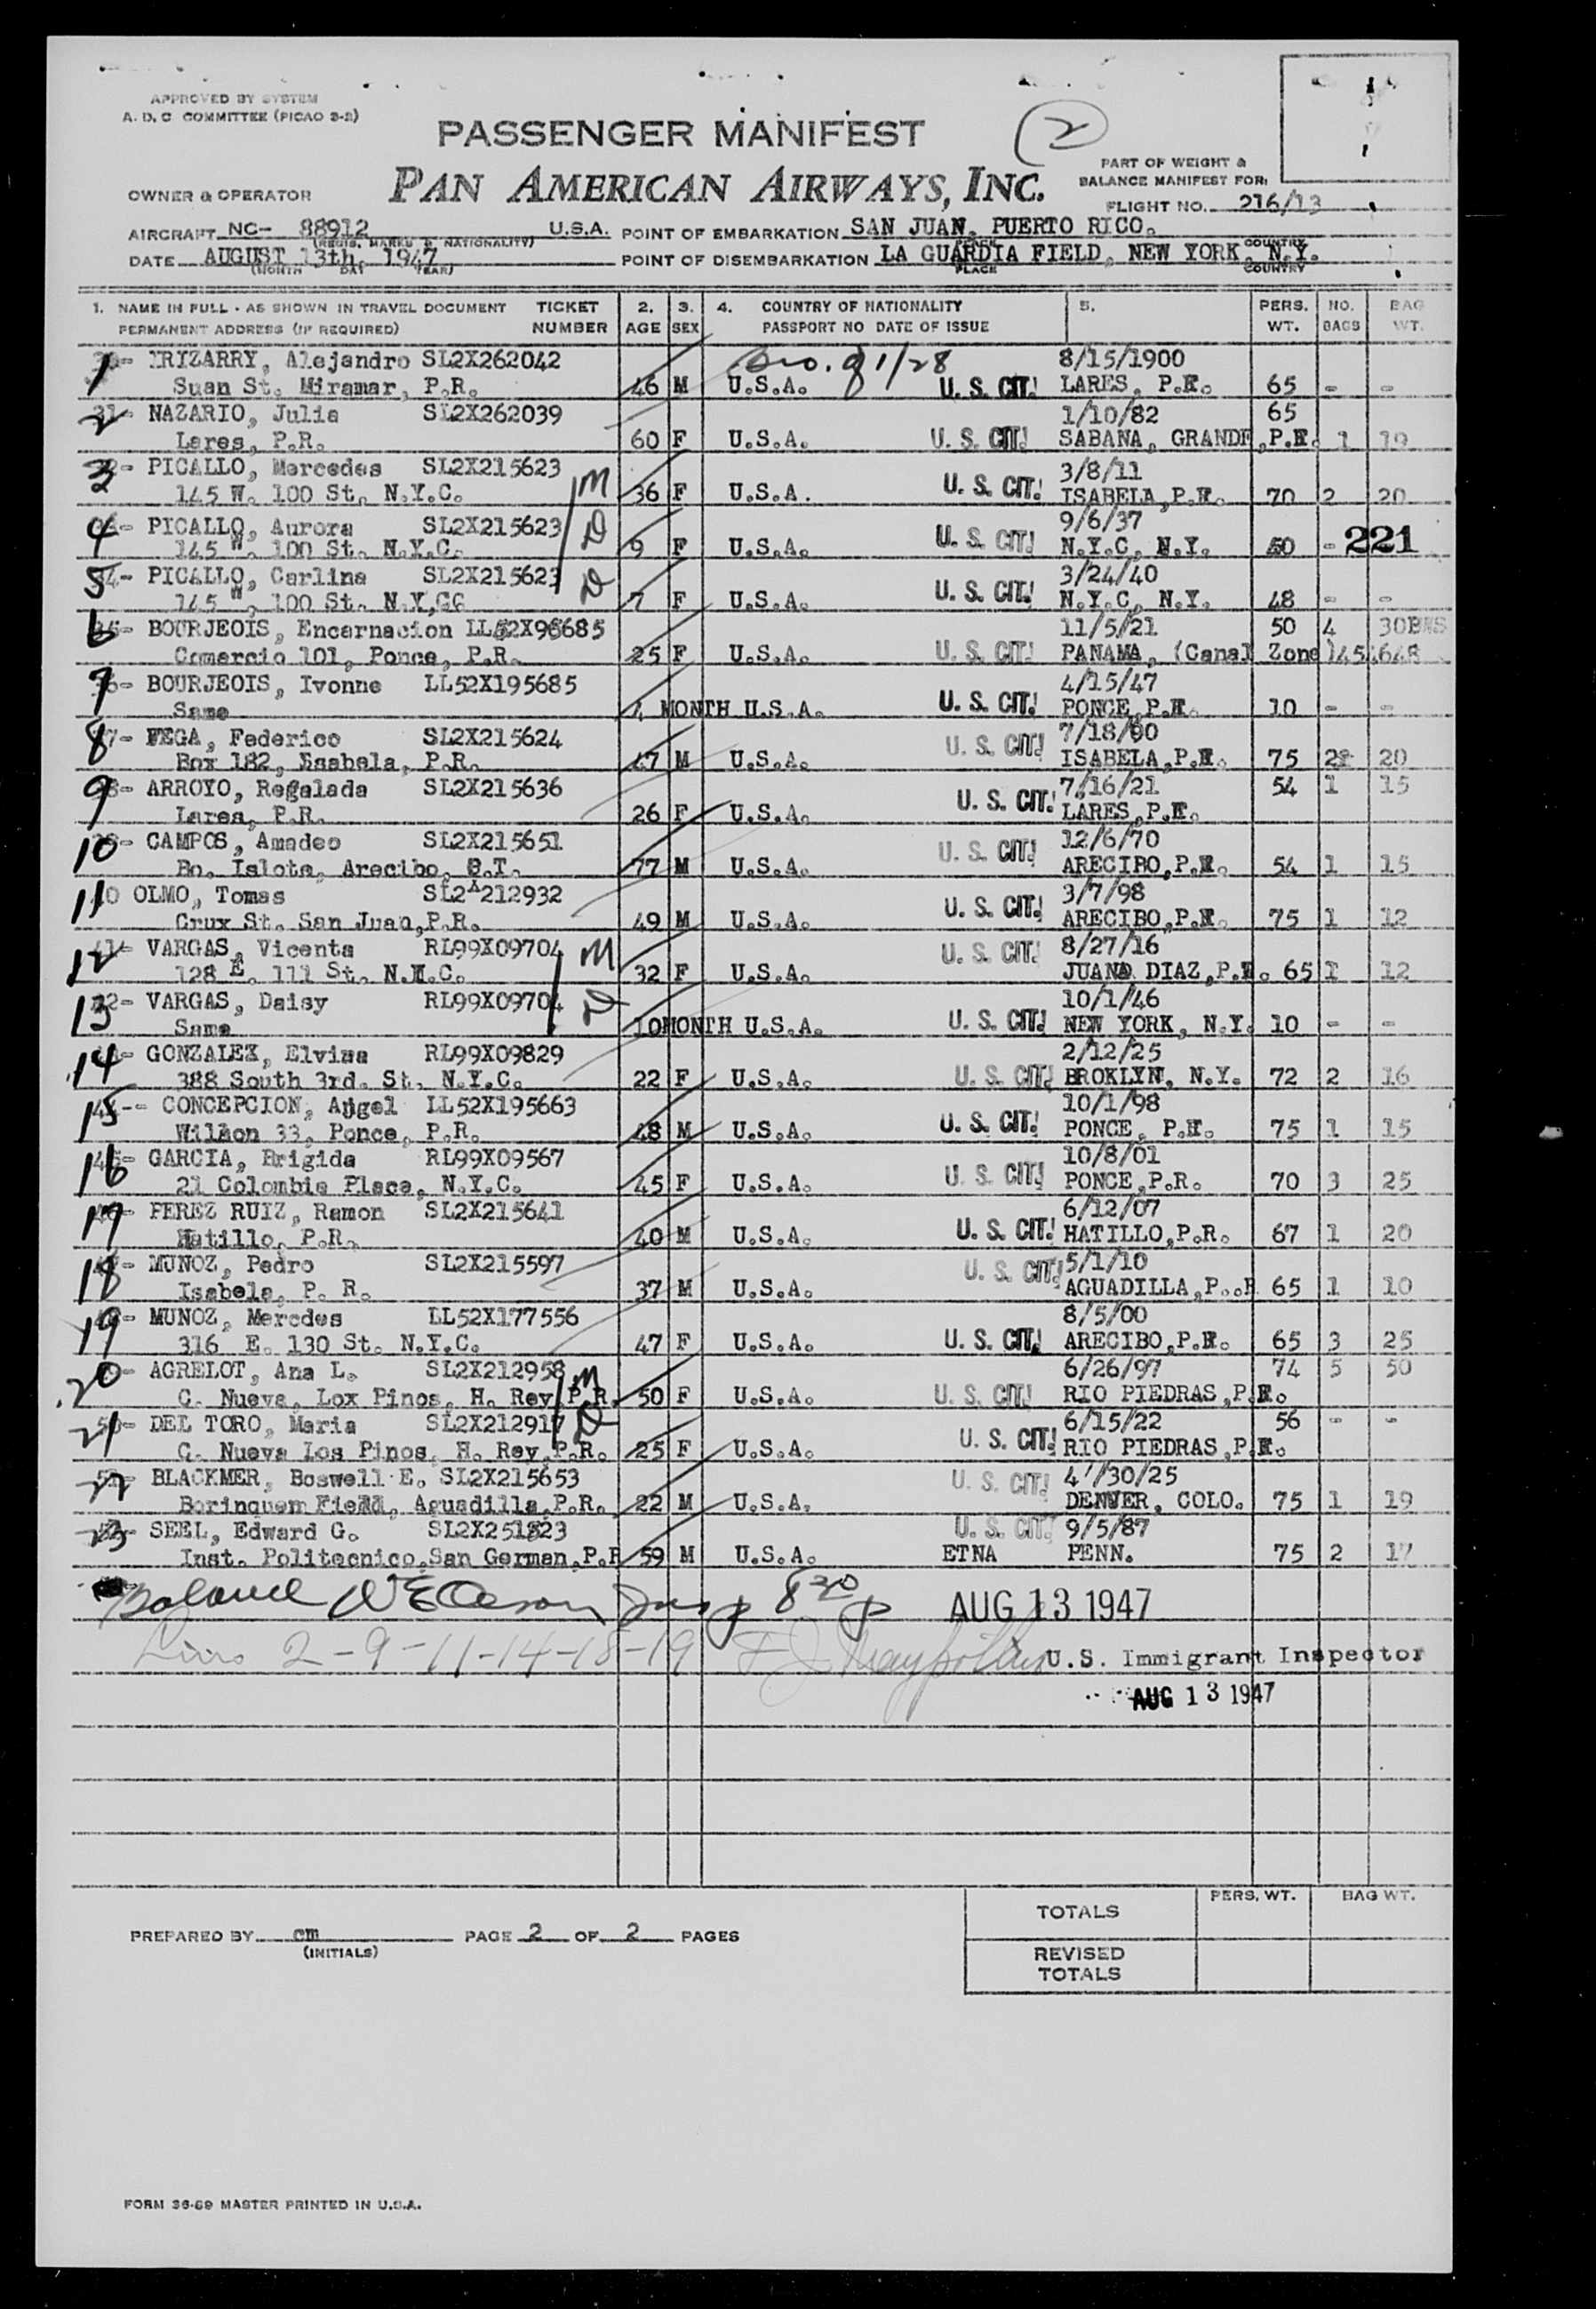 APPROVED BY SYSTEM
A. D. C COMMITTEE (PICAO 2-2)
PASSENGER MANIFEST
2
PART OF WEIGHT &
BALANCE MANIFEST FOR:
OWNER & OPERATOR
PAN AMERICAN AIRWAYS, INC.
FLIGHT NO. 216/13
AIRCRAFT NC- 88912 U.S.A. POINT OF EMBARKATION SAN JUAN, PUERTO RICO.
(REGIS. MARKS & NATIONALITY) PLACE COUNTRY
DATE AUGUST 13th, 1947 POINT OF DISEMBARKATION LA GUARDIA FIELD, NEW YORK, N.Y.
(MONTH DAY YEAR) PLACE COUNTRY
1. NAME IN FULL - AS SHOWN IN TRAVEL DOCUMENT TICKET 2. 3. 4. COUNTRY OF NATIONALITY 5. PERS. NO. BAG
PERMANENT ADDRESS (IF REQUIRED) NUMBER AGE SEX PASSPORT NO DATE OF ISSUE WT. BAGS WT.
1 IRIZARRY, Alejandro SL2X262042 8/15/1900
Suan St. Miramar, P.R. 46 M U.S.A. U. S. CIT. LARES, P.R. 65 - -
2 NAZARIO, Julia SL2X262039 1/10/82 65
Lares, P.R. 60 F U.S.A. U. S. CIT. SABANA, GRANDE, P.R. 1 19
3 PICALLO, Mercedes SL2X215623 M 3/8/11
145 W. 100 St. N.Y.C. 36 F U.S.A. U. S. CIT. ISABELA, P.R. 70 2 20
4 PICALLO, Aurora SL2X215623 D 9/6/37
145 W. 100 St. N.Y.C. 9 F U.S.A. U. S. CIT. N.Y.C, N.Y. 50 - 221
5 PICALLO, Carlina SL2X215623 D 3/24/40
145 W, 100 St. N.Y,CC 7 F U.S.A. U. S. CIT. N.Y.C, N.Y. 48 - -
6 BOURJEOIS, Encarnacion 11/5/21 50 4
Comercio 101, Ponce, P.R. 25 F U.S.A. U. S. CIT. PANAMA, (Canal Zone)
7 BOURJEOIS, Ivonne LL52X195685 4/15/47
Same 4 MONTH U.S.A. U. S. CIT. PONCE, P.R. 10 - -
8 VEGA, Federico SL2X215624
Box 182, Esabela, P.R. 47 M U.S.A. U. S. CIT. ISABELA, P.R. 75 2 20
9 ARROYO, Regalada SL2X215636 7/16/21 54 1 15
Lares, P.R. 26 F U.S.A. U. S. CIT. LARES, P.R.
10 CAMPOS, Amadeo SL2X215651 12/6/70
Bo. Islote, Arecibo, 77 M U.S.A. U. S. CIT. ARECIBO, P.R. 54 1 15
11 OLMO, Tomas 3/7/98
Crux St. San Juan, P.R. 49 M U.S.A. U. S. CIT. ARECIBO, P.R. 75 1 12
12 VARGAS, Vicenta RL99X09704 M 8/27/16
128 E. 111 St. N.Y.C. 32 F U.S.A. U. S. CIT. JUANA DIAZ, P.R. 65 1 12
13 VARGAS, Daisy RL99X09704 D 10/1/46
Same 10MONTH U.S.A. U. S. CIT. NEW YORK, N.Y. 10 - -
14 GONZALEZ, Elvina RL99X09829 2/12/25
388 South 3rd. St. N.Y.C. 22 F U.S.A. U. S. CIT. BROKLYN, N.Y. 72 2 16
15 CONCEPCION, Angel LL52X195663 10/1/98
Wilson 33, Ponce, P.R. 48 M U.S.A. U. S. CIT. PONCE, P.R. 75 1 15
16 GARCIA, Brigida RL99X09567 10/8/01
21 Colombia Place, N.Y.C. 45 F U.S.A. U. S. CIT. PONCE, P.R. 70 3 25
17 PEREZ RUIZ, Ramon SL2X215641 6/12/07
Hatillo, P.R. 40 M U.S.A. U. S. CIT. HATILLO, P.R. 67 1 20
18 MUNOZ, Pedro SL2X215597 5/1/10
Isabela, P. R. 37 M U.S.A. U. S. CIT. AGUADILLA, P..R 65 1 10
19 MUNOZ, Mercdes LL52X177556 8/5/00
316 E. 130 St. N.Y.C. 47 F U.S.A. U. S. CIT. ARECIBO, P.R. 65 3 25
20 AGRELOT, Ana L. SL2X212958 M 6/26/97 74 5 50
C. Nueva, Lox Pinos, H. Rey, P.R. 50 F U.S.A. U. S. CIT. RIO PIEDRAS, P.R.
21 DEL TORO, Maria SL2X212917 D 6/15/22 56 - -
C. Nueva Los Pinos, H. Rey, P.R. 25 F U.S.A. U. S. CIT. RIO PIEDRAS, P.R.
22 BLACKMER, Boswell E. SL2X215653 4/30/25
Borinquen Field, Aguadilla, P.R. 22 M U.S.A. U. S. CIT. DENVER, COLO. 75 1 19
23 SEEL, Edward G. U. S. CIT. 9/5/87
Inst. Politecnico, San German, P.R 59 M U.S.A. ETNA PENN. 75 2 17
AUG 13 1947
2-9-11-14-18-19 U.S. Immigrant Inspector
AUG 13 1947
PERS. WT. BAG WT.
TOTALS
PREPARED BY cm PAGE 2 OF 2 PAGES
(INITIALS)
REVISED
TOTALS
FORM 36-69 MASTER PRINTED IN U.S.A.